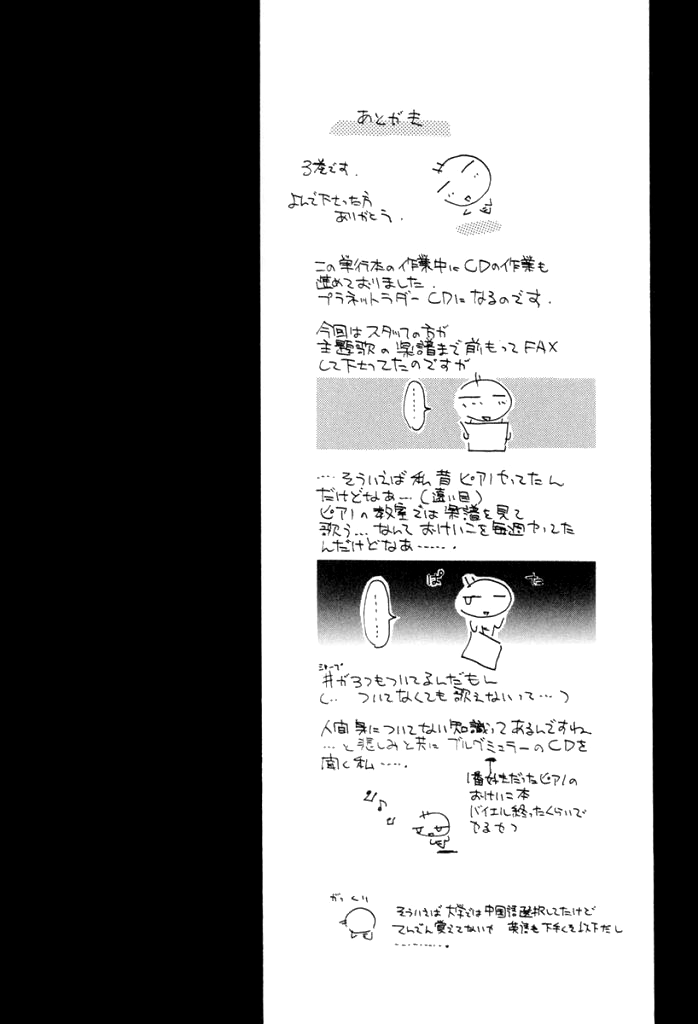 あとがき
3巻です.
よんで下さった方
ありがとう.
この単行本の作業中にCDの作業も
進めておりました.
プラネットラダー CDになるのです.
今回はスタッフの方が
主題歌の楽譜まで前もってFAX
して下さってたのですが
………
…そういえば私昔ピアノやってたん
だけどなあ…(遠い目)
ピアノの教室では楽譜を見て
歌う…なんておけいこを毎週やってた
んだけどなあ……．
ぱ
さ
………
シャープ
#が3つもついてるんだもん
(.. ついてなくても歌えないって…)
人間身についてない知識ってあるんですね
…と悲しみと共にブルグミュラーのCDを
聞く私…….
1番好きだったピアノの
おけいこ本
バイエル終ったくらいで
やるやつ
がっくり
そういえば大学では中国語選択してたけど
てんでん覚えてないや 英語も下手くそ以下だし
…………。